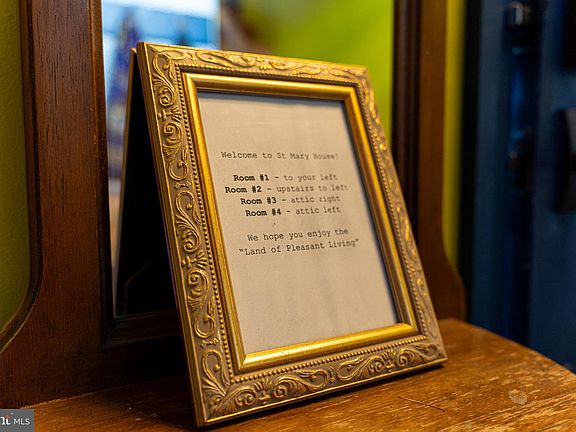 Welcome to St Mary House!
Room #1 - to your left
Room #2 - upstairs to left
Room #3 - attic right
Room #4 - attic left
We hope you enjoy the
"Land of Pleasant Living"
MLS